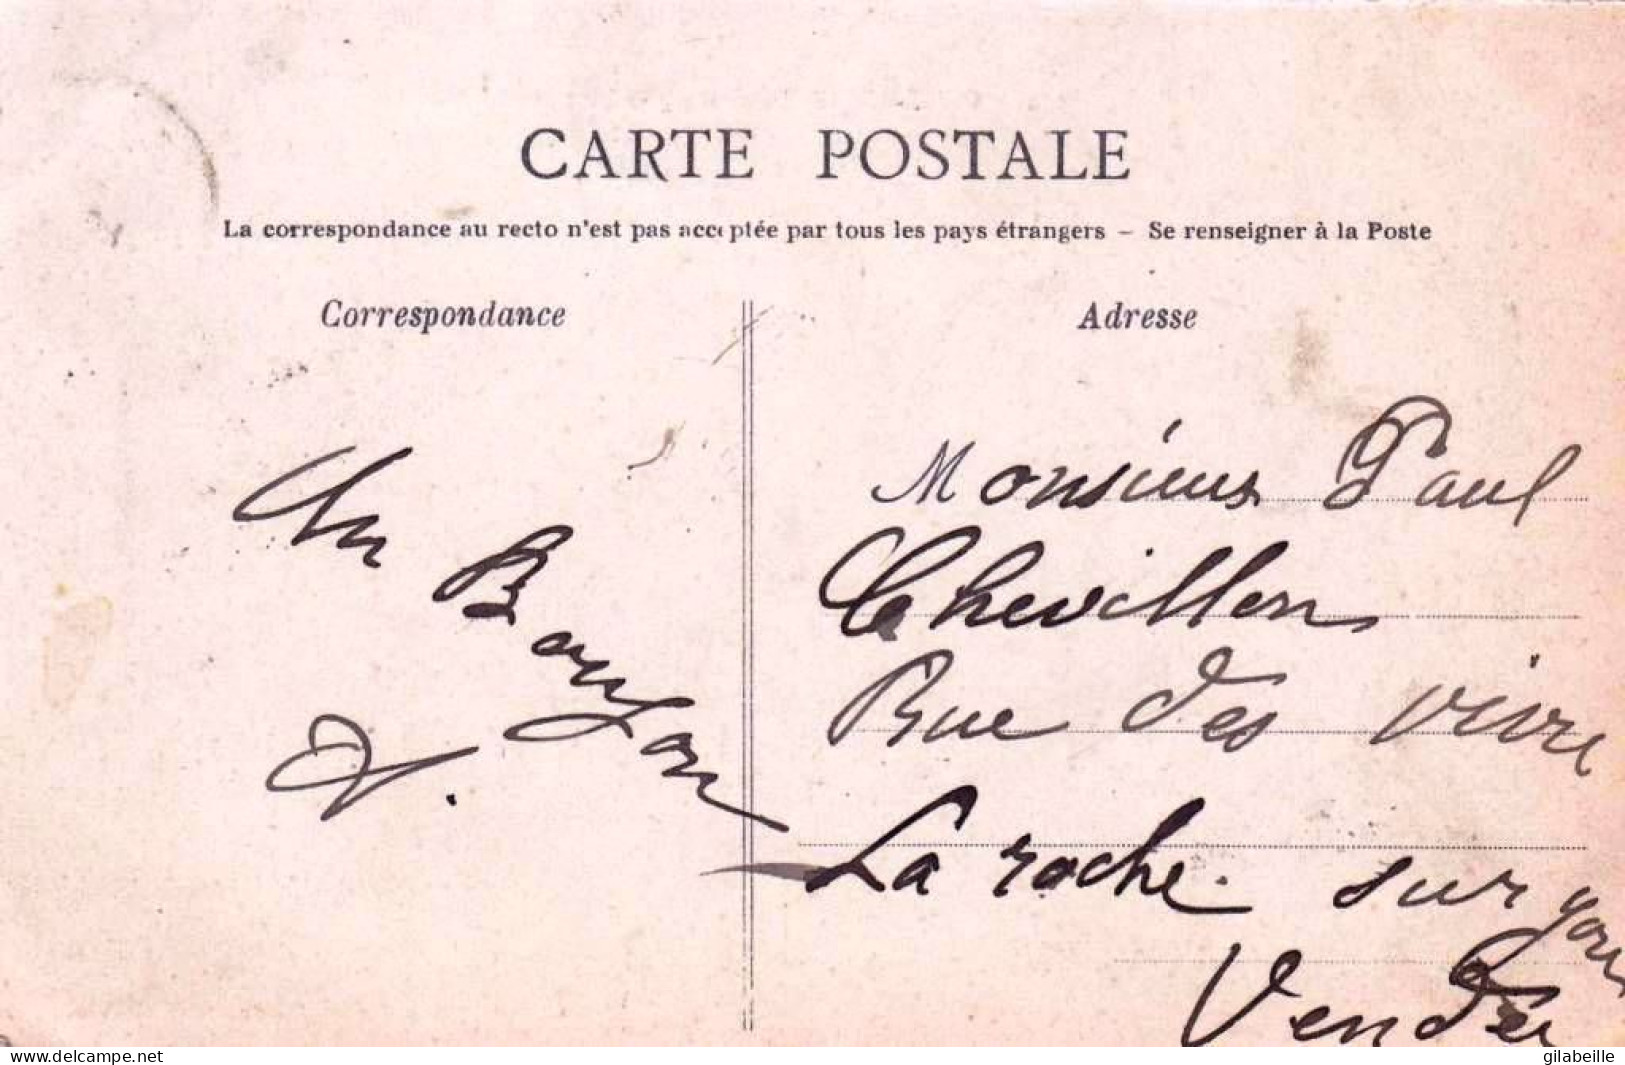 CARTE POSTALE
La correspondance au recto n'est pas acceptée par tous les pays étrangers – Se renseigner à la Poste
Correspondance
Un
Bonjou
Adresse
Monsieur Paul
Chevillon
Rue des vivre
La roche sur yon
Vendée
www.delcampe.net
gilabeille